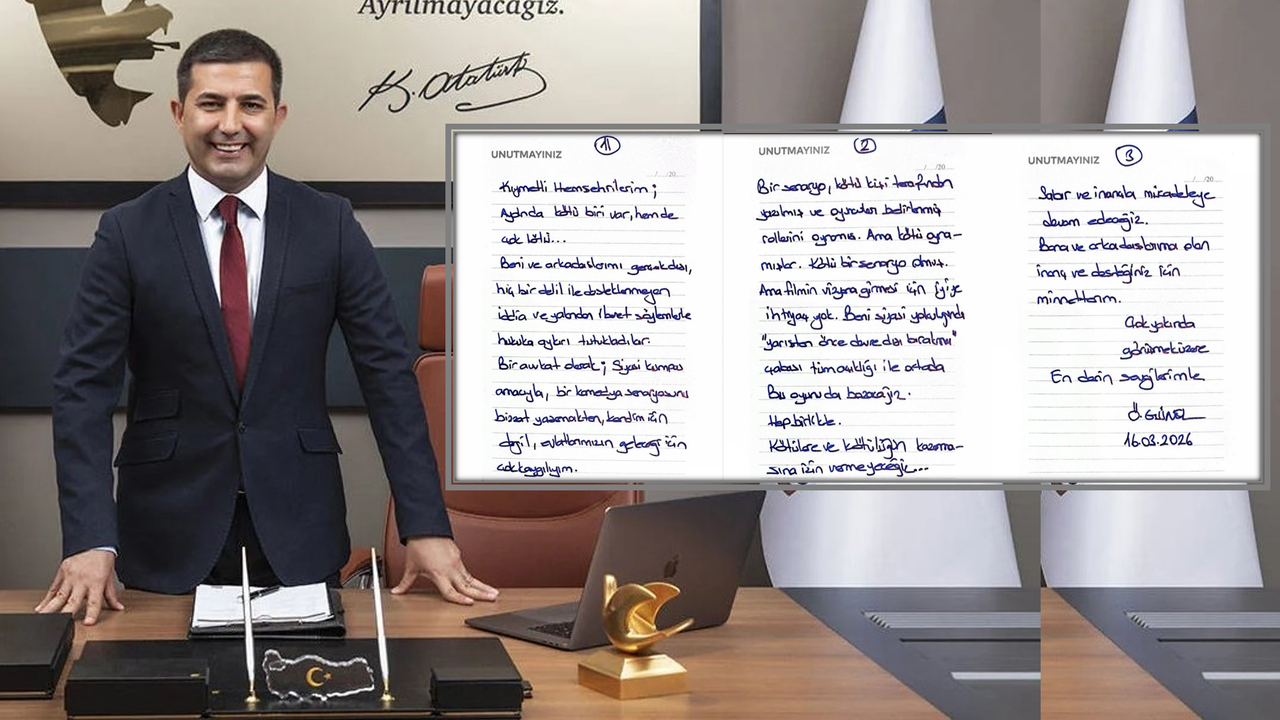 Ayrılmayacağız.
K. Atatürk
UNUTMAYINIZ
1
../../20..
Kıymetli Hemşehrilerim;
Aydında kötü biri var, hem de
çok kötü...
Beni ve arkadaşlarımı gerçek dışı,
hiç bir delil ile desteklenmeyen
iddia ve yalandan ibaret söylemlerle
hukuka aykırı tutukladılar.
Bir avukat olarak; Siyasi kumpas
amacıyla, bir komedya senaryosunu
bizzat yaşamaktan, kendim için
değil, evlatlarımızın geleceği için
çok kaygılıyım.
UNUTMAYINIZ
2
../../20
Bir senaryo, kötü kişi tarafından
yazılmış ve oyuncuları belirlenmiş
rollerini oynamış. Ama kötü oyna-
mışlar. Kötü bir senaryo olmuş.
Ama filmin vizyona girmesi için iyiye
ihtiyaç yok. Beni siyasi yolculuğunda
"yarıştan önce devre dışı bırakma"
çabası tüm açıklığı ile ortada
Bu oyunu da bozacağız.
Hep birlikte.
Kötülere ve kötülüğün kazanma-
sına izin vermeyeceğiz...
UNUTMAYINIZ
3
../../20
Sabır ve inançla mücadeleye
devam edeceğiz.
Bana ve arkadaşlarıma olan
inanç ve desteğiniz için
minnettarım.
Çok yakında
görüşmek üzere
En derin saygılarımla
Ö. GÜNEL
16.03.2026